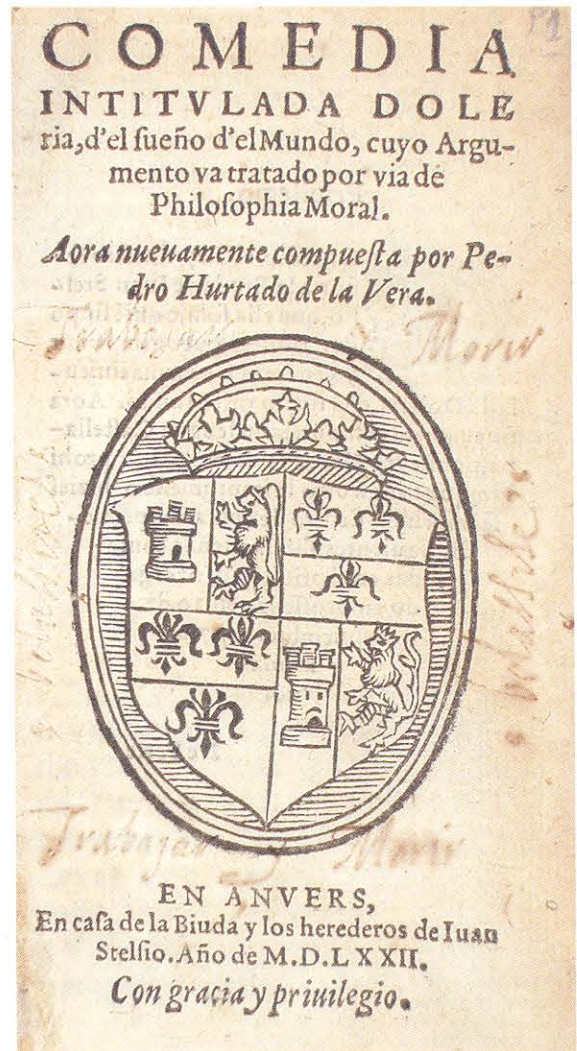 P1
COMEDIA
INTITVLADA DOLE
ria,d'el ſueño d'elMundo, cuyo Argu-
mento va tratado por via de
Philoſophia Moral.
Aora nueuamente compueſta por Pe-
dro Hurtado de la Vera.
Morir
Trabajar y Morir
EN ANVERS,
En caſa de la Biuda y los herederos de Iuan
Stelſio. Año de M.D.LXXII.
Con gracia y priuilegio.